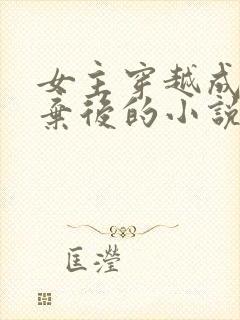 女主穿越成
棄後的小說
匡瀅